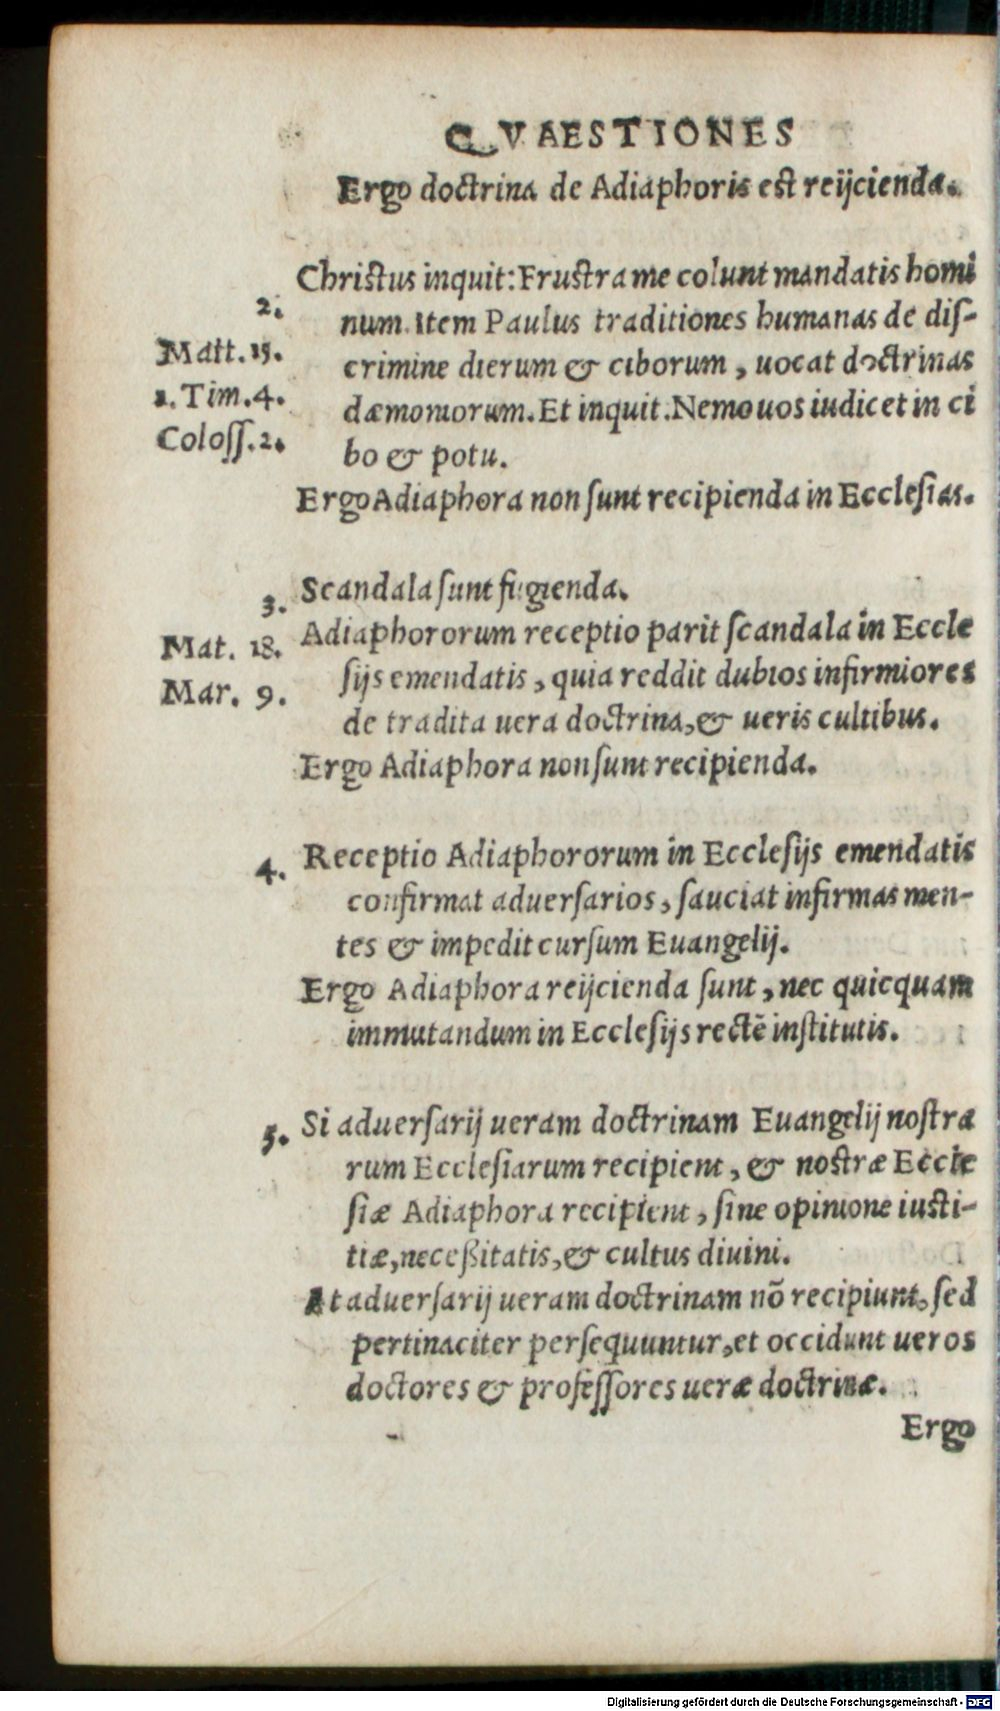 QVAESTIONES
Ergo doctrina de Adiaphoris est reijcienda.
Christus inquit: Frustra me colunt mandatis homi
2.
num. Item Paulus traditiones humanas de dis-
Matt. 15.
crimine dierum & ciborum, uocat doctrinas
1. Tim. 4.
dæmoniorum. Et inquit. Nemo uos iudicet in ci
Coloss. 2.
bo & potu.
Ergo Adiaphora non sunt recipienda in Ecclesias.
3. Scandala sunt fugienda.
Mat. 18.
Adiaphororum receptio parit scandala in Eccle
sijs emendatis, quia reddit dubios infirmiores
Mar. 9.
de tradita uera doctrina, & ueris cultibus.
Ergo Adiaphora non sunt recipienda.
4. Receptio Adiaphororum in Ecclesijs emendatis
confirmat aduersarios, sauciat infirmas men-
tes & impedit cursum Euangelij.
Ergo Adiaphora reijcienda sunt, nec quicquam
immutandum in Ecclesijs rectè institutis.
5. Si aduersarij ueram doctrinam Euangelij nostra
rum Ecclesiarum recipient, & nostræ Eccle
siæ Adiaphora recipient, sine opinione iusti-
tiæ, neceßitatis, & cultus diuini.
At aduersarij ueram doctrinam nō recipiunt, sed
pertinaciter persequuntur, et occidunt ueros
doctores & professores ueræ doctrinæ.
Ergo
Digitalisierung gefördert durch die Deutsche Forschungsgemeinschaft - DFG